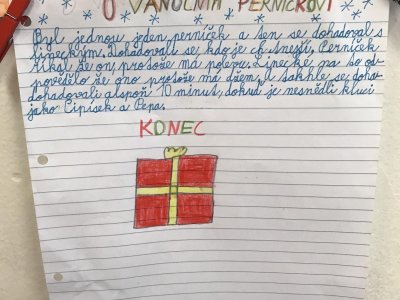 O VÁNOČNÍM PERNÍČKOVI
Byl jednou jeden perníček a ten se dohadoval s
lineckým. Dohadovali se kdo je
Říkal že on protože má polevu. Linecké
že ono protože má džem. A takhle se doha-
dohadovali alespoň 10 minut, dokud je nesnědli kluci
jako Cipísek a Pepa.
KONEC